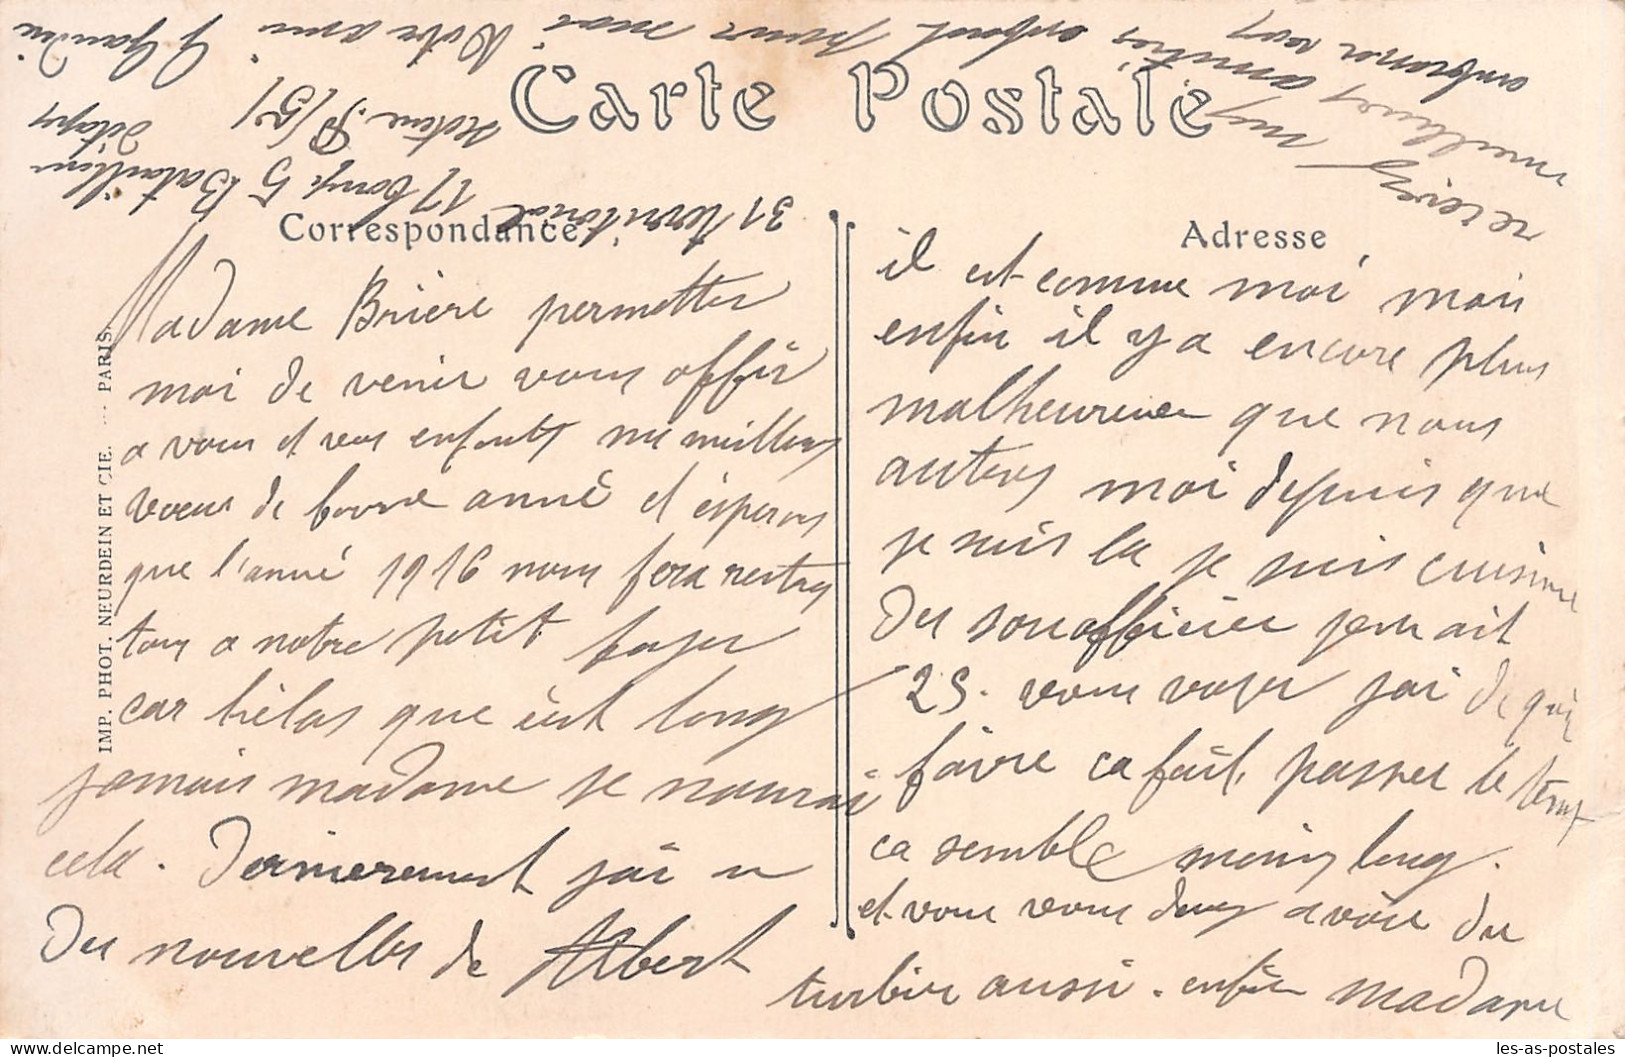 Carte Postale
Correspondance
Adresse
IMP. PHOT. NEURDEIN ET CIE. — PARIS.
Madame Brière permetter
moi de venir vous offrir
a vous et vos enfants mes meilleurs
voeux de bonne anné et espérons
que l'anné 1916 nous fera rentrer
tous a notre petit foyer
car hélas que c'est long
jamais madame je naurai
cela. Dernierement jai u
des nouvelles de Albert
il est comme moi mais
enfin il y a encore plus
malheureux que nous
autres moi depuis que
je suis la je suis cuisinie
des sousofficier jen ait
25. vous voyer jai de quoi
faire ca fait passer le temp
ca semble moins long.
et vous vous devez avoir du
turbin aussi. enfin madame
recevez mes
meilleures amitiés
embrasser vos enfants pour moi. Votre ami G Gaudin
31 territorial
17 comp 5 Bataillion
détaper
Secteur P (51